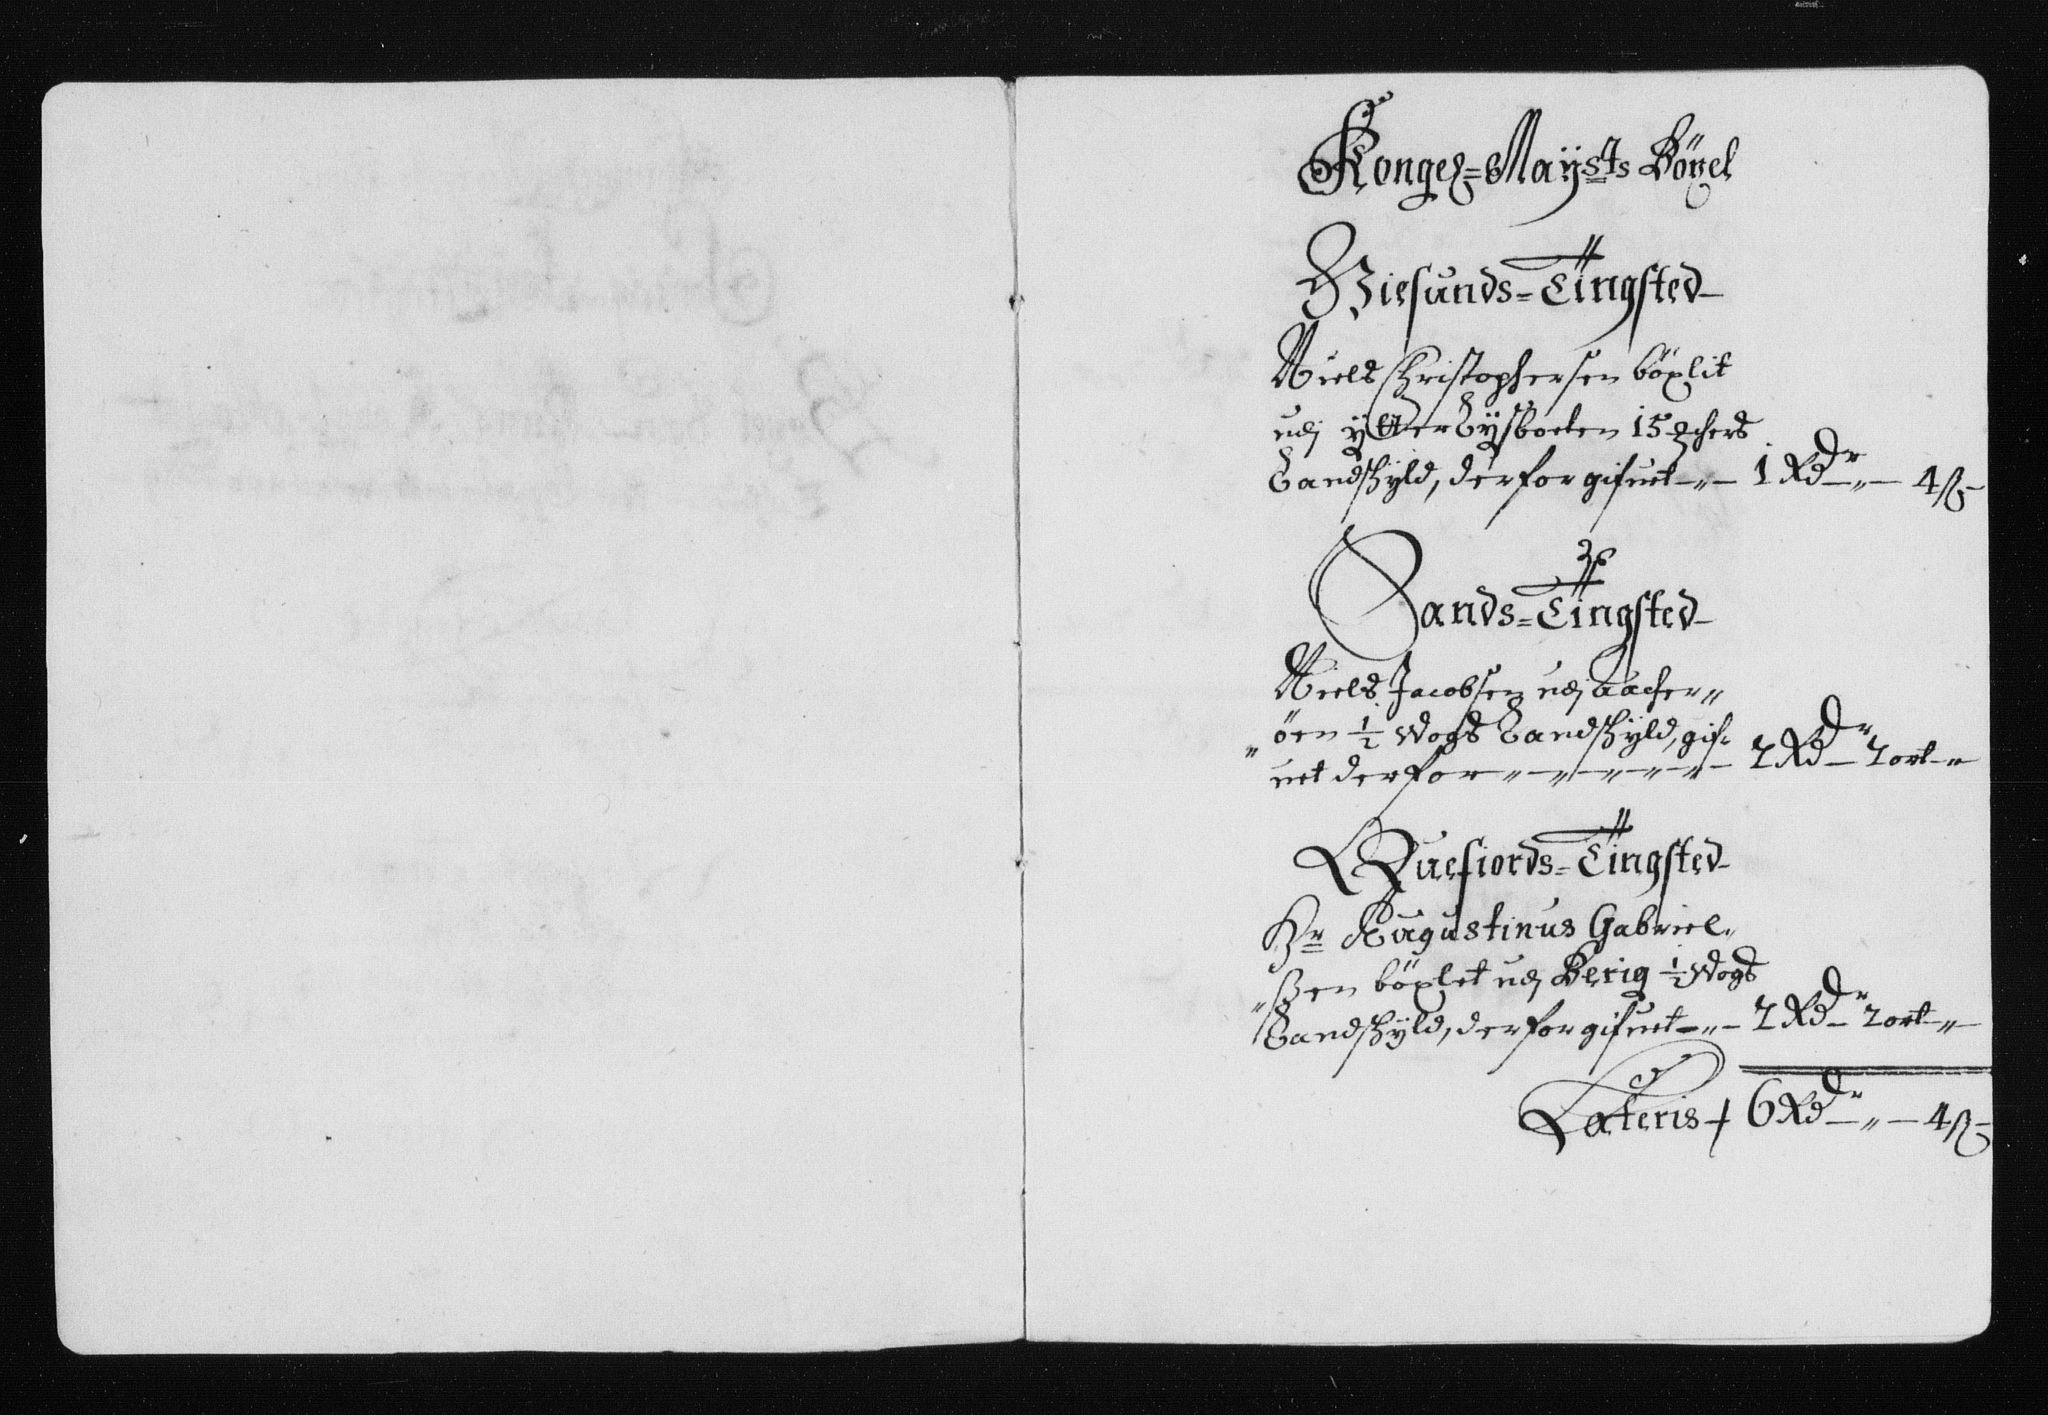 Konge: Mayßts Böxel
Giesunds=Tingsted
Niels Christophersen böxlit
udj ytter Lysboeten 15 mchers
Landschyld, derfor gifuet 1 Rdr 4ß
Sands=Tingsted
Niels Jacobsen udj Aacher
öen 1/2 Wogs Landschyld, gif
uet derfor 2 Rdr 2 ort
Quefiords=Tingsted
Hr Augustinus Gabriel
ßen böxlet udj Berig 1/2 Wogs
Landschyld, derfor gifuet 2 Rdr 2 ort
Lateris 6 Rdr 4ß